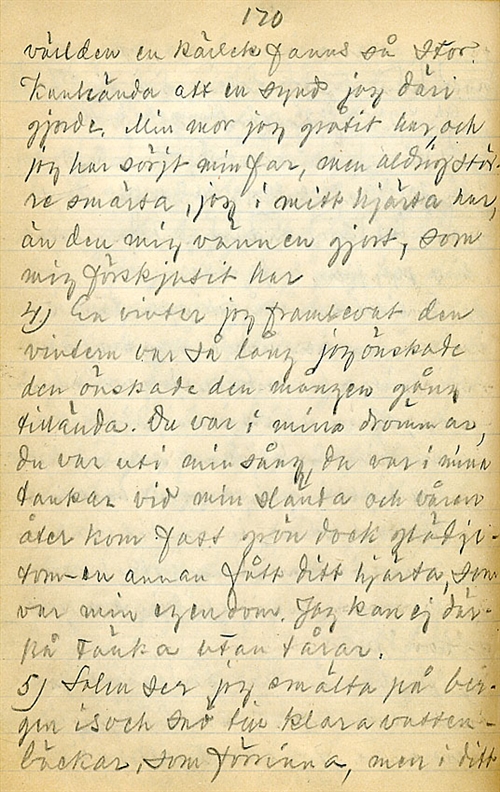 170
världen en kärlek fanns så stor.
Kanhända att en synd jag däri
gjorde. Min mor jag gråtit har och
jag har sörjt min far, men aldrig stör-
re smärta, jag i mitt hjärta har,
än den mig vännen gjort, som
mig förskjutit har
4) En vinter jag framlevat den
vintern var så lång jag önskade
den önskade den mången gång
tillända. Du var i mina drömmar,
du var uti min sång, du var i mina
tankar vid min slända och våren
åter kom fast grön dock glädje-
tom en annan fått ditt hjärta, som
var min egendom. Jag kan ej där-
på tänka utan tårar.
5) Solen ser jag smälta på ber-
gen is och snö till klara vatten-
bäckar, som förrinna, men i ditt